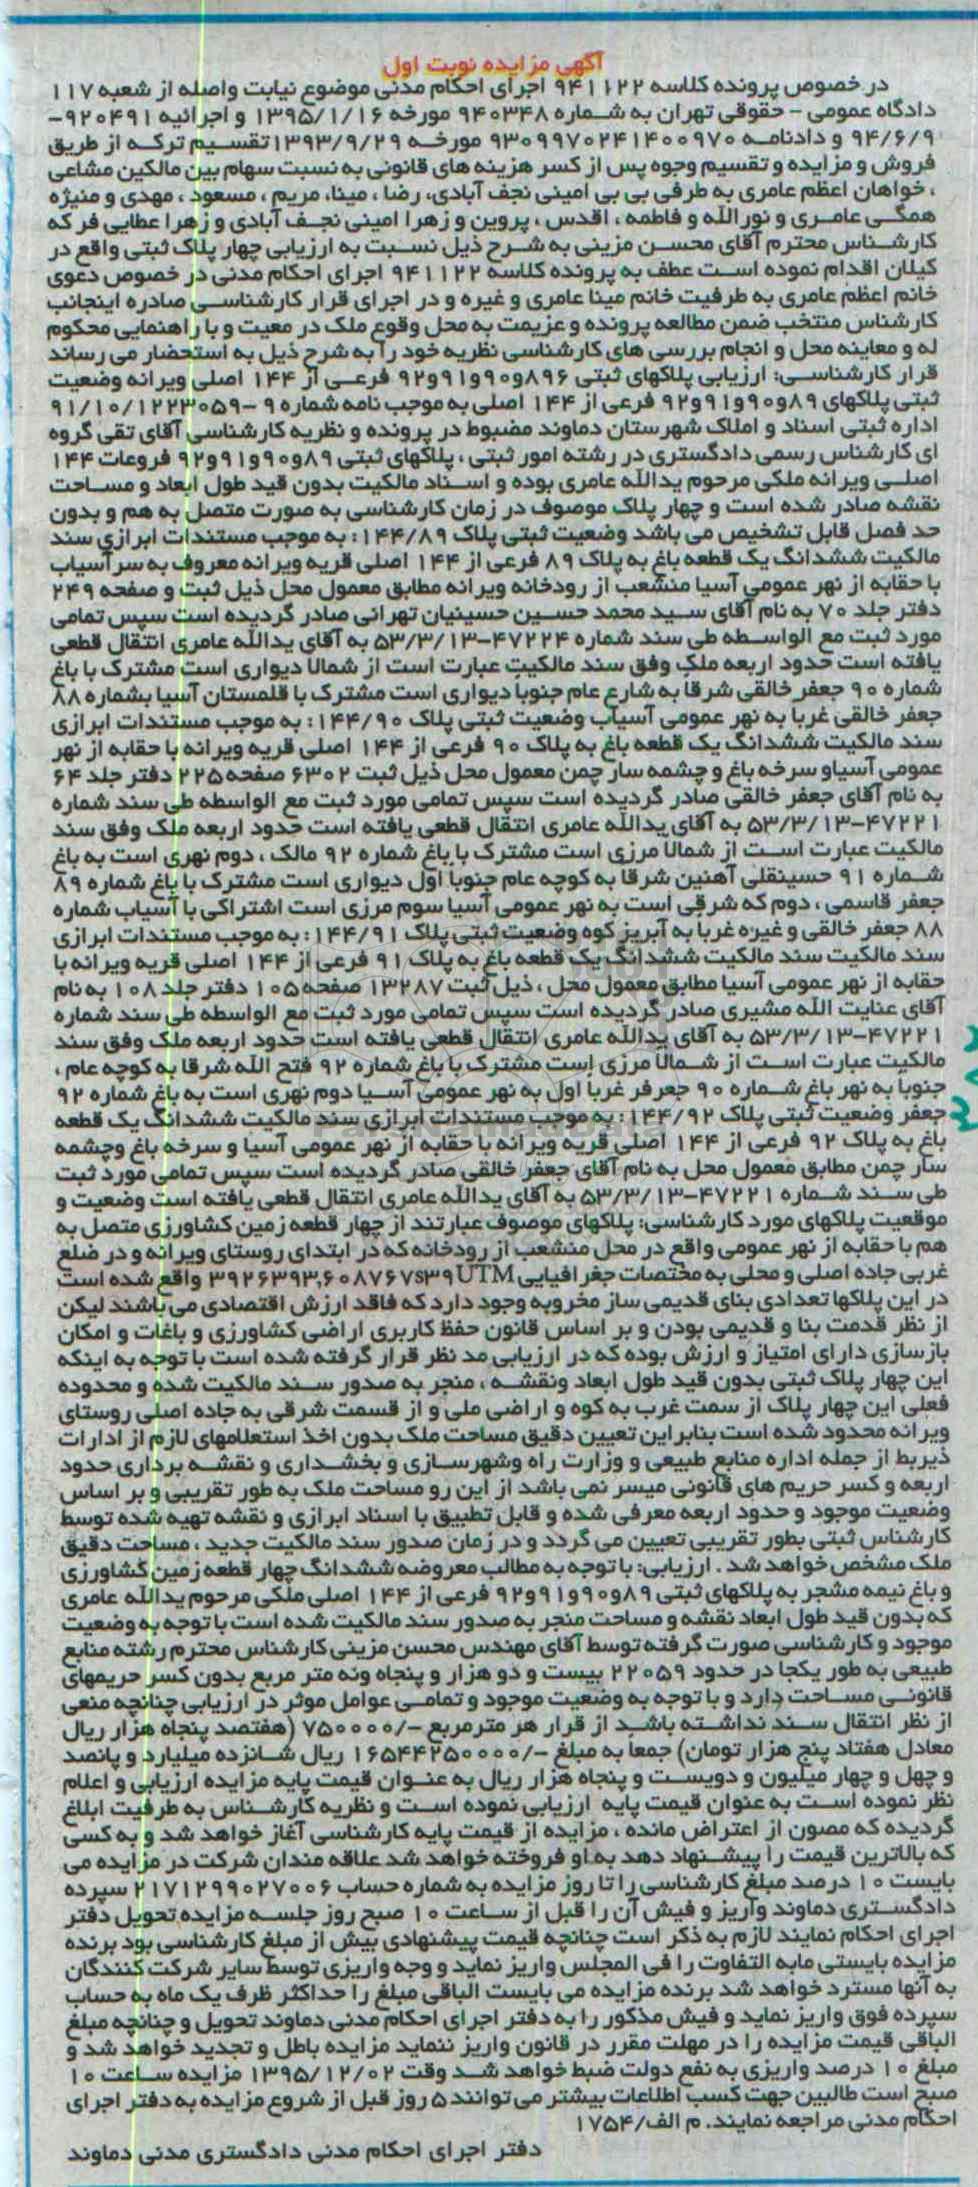 آگهی مزایده نوبت اول
در خصوص پرونده کلاسه ۹۴۱۱۲۲ اجرای احکام مدنی موضوع نیابت واصله از شعبه ۱۱۷
دادگاه عمومی - حقوقی تهران به شماره ۹۴۰۳۴۸ مورخه ۱۳۹۵/۱/۱۶ و اجرائیه ۹۲۰۴۹۱-
۹۴/۶/۹ و دادنامه ۹۳۰۹۹۷۰۲۴۱۴۰۰۹۷۰ مورخه ۱۳۹۳/۹/۲۹ تقسیم ترکه از طریق
فروش و مزایده و تقسیم وجوه پس از کسر هزینه های قانونی به نسبت سهام بین مالکین مشاعی
، خواهان اعظم عامری به طرفی بی بی امینی نجف آبادی، رضا ، مینا، مریم ، مسعود ، مهدی و منیژه
همگی عامری و نورالله و فاطمه ، اقدس ، پروین و زهرا امینی نجف آبادی و زهرا عطایی فر که
کارشناس محترم آقای محسن مزینی به شرح ذیل نسبت به ارزیابی چهار پلاک ثبتی واقع در
کیلان اقدام نموده است عطف به پرونده کلاسه ۹۴۱۱۲۲ اجرای احکام مدنی در خصوص دعوی
خانم اعظم عامری به طرفیت خانم مینا عامری و غیره و در اجرای قرار کارشناسی صادره اینجانب
کارشناس منتخب ضمن مطالعه پرونده و عزیمت به محل وقوع ملک در معیت و با راهنمایی محکوم
له و معاینه محل و انجام بررسی های کارشناسی نظریه خود را به شرح ذیل به استحضار می رساند
قرار کارشناسی: ارزیابی پلاکهای ثبتی ۸۹۶و۹۰و۹۱و۹۲ فرعی از ۱۴۴ اصلی ویرانه وضعیت
ثبتی پلاکهای ۸۹و۹۰و۹۱و۹۲ فرعی از ۱۴۴ اصلی به موجب نامه شماره ۹-۹۱/۱۰/۱۲۲۳۰۵۹
اداره ثبتی اسناد و املاک شهرستان دماوند مضبوط در پرونده و نظریه کارشناسی آقای تقی گروه
ای کارشناس رسمی دادگستری در رشته امور ثبتی ، پلاکهای ثبتی ۸۹و۹۰و۹۱و۹۲ فروعات ۱۴۴
اصلی ویرانه ملکی مرحوم یدالله عامری بوده و اسناد مالکیت بدون قید طول ابعاد و مساحت
نقشه صادر شده است و چهار پلاک موصوف در زمان کارشناسی به صورت متصل به هم و بدون
حد فصل قابل تشخیص می باشد وضعیت ثبتی پلاک ۱۴۴/۸۹ : به موجب مستندات ابرازی سند
مالکیت ششدانگ یک قطعه باغ به پلاک ۸۹ فرعی از ۱۴۴ اصلی قریه ویرانه معروف به سرآسیاب
با حقابه از نهر عمومی آسیا منشعب از رودخانه ویرانه مطابق معمول محل ذیل ثبت و صفحه ۲۴۹
دفتر جلد ۷۰ به نام آقای سید محمد حسین حسینیان تهرانی صادر گردیده است سپس تمامی
مورد ثبت مع الواسطه طی سند شماره ۴۷۲۲۴-۵۳/۳/۱۳ به آقای یدالله عامری انتقال قطعی
یافته است حدود اربعه ملک وفق سند مالکیت عبارت است از شمالا دیواری است مشترک با باغ
شماره ۹۰ جعفر خالقی شرقا به شارع عام جنوبا دیواری است مشترک با قلمستان آسیا بشماره ۸۸
جعفر خالقی غربا به نهر عمومی آسیاب وضعیت ثبتی پلاک ۱۴۴/۹۰ : به موجب مستندات ابرازی
سند مالکیت ششدانگ یک قطعه باغ به پلاک ۹۰ فرعی از ۱۴۴ اصلی قریه ویرانه با حقابه از نهر
عمومی آسیاو سرخه باغ و چشمه سار چمن معمول محل ذیل ثبت ۶۳۰۲ صفحه ۲۲۵ دفتر جلد ۶۴
به نام آقای جعفر خالقی صادر گردیده است سپس تمامی مورد ثبت مع الواسطه طی سند شماره
۴۷۲۲۱-۵۳/۳/۱۳ به آقای یدالله عامری انتقال قطعی یافته است حدود اربعه ملک وفق سند
مالکیت عبارت است از شمالا مرزی است مشترک با باغ شماره ۹۲ مالک ، دوم نهری است به باغ
شماره ۹۱ حسینقلی آهنین شرقا به کوچه عام جنوبا اول دیواری است مشترک با باغ شماره ۸۹
جعفر قاسمی ، دوم که شرقی است به نهر عمومی آسیا سوم مرزی است اشتراکی با آسیاب شماره
۸۸ جعفر خالقی و غیره غربا به آبریز کوه وضعیت ثبتی پلاک ۱۴۴/۹۱ : به موجب مستندات ابرازی
سند مالکیت سند مالکیت ششدانگ یک قطعه باغ به پلاک ۹۱ فرعی از ۱۴۴ اصلی قریه ویرانه با
حقابه از نهر عمومی آسیا مطابق معمول محل ، ذیل ثبت ۱۳۲۸۷ صفحه ۱۰۵ دفتر جلد ۱۰۸ به نام
آقای عنایت الله مشیری صادر گردیده است سپس تمامی مورد ثبت مع الواسطه طی سند شماره
۴۷۲۲۱-۵۳/۳/۱۳ به آقای یدالله عامری انتقال قطعی یافته است حدود اربعه ملک وفق سند
مالکیت عبارت است از شمالا مرزی است مشترک با باغ شماره ۹۲ فتح الله شرقا به کوچه عام ،
جنوبا به نهر باغ شماره ۹۰ جعرفر غربا اول به نهر عمومی آسیا دوم نهری است به باغ شماره ۹۲
جعفر وضعیت ثبتی پلاک ۱۴۴/۹۲ : به موجب مستندات ابرازی سند مالکیت ششدانگ یک قطعه
باغ به پلاک ۹۲ فرعی از ۱۴۴ اصلی قریه ویرانه با حقابه از نهر عمومی آسیا و سرخه باغ وچشمه
سار چمن مطابق معمول محل به نام آقای جعفر خالقی صادر گردیده است سپس تمامی مورد ثبت
طی سند شماره ۴۷۲۲۱-۵۳/۳/۱۳ به آقای یدالله عامری انتقال قطعی یافته است وضعیت و
موقعیت پلاکهای مورد کارشناسی: پلاکهای موصوف عبارتند از چهار قطعه زمین کشاورزی متصل به
هم با حقابه از نهر عمومی واقع در محل منشعب از رودخانه که در ابتدای روستای ویرانه و در ضلع
غربی جاده اصلی و محلی به مختصات جغرافیایی UTM ۳۹s۳۹۲۶۳۹۳,۶۰۸۷۶۷ واقع شده است
در این پلاکها تعدادی بنای قدیمی ساز مخروبه وجود دارد که فاقد ارزش اقتصادی می باشند لیکن
از نظر قدمت بنا و قدیمی بودن و بر اساس قانون حفظ کاربری اراضی کشاورزی و باغات و امکان
بازسازی دارای امتیاز و ارزش بوده که در ارزیابی مد نظر قرار گرفته شده است با توجه به اینکه
این چهار پلاک ثبتی بدون قید طول ابعاد ونقشه ، منجر به صدور سند مالکیت شده و محدوده
فعلی این چهار پلاک از سمت غرب به کوه و اراضی ملی و از قسمت شرقی به جاده اصلی روستای
ویرانه محدود شده است بنابر این تعیین دقیق مساحت ملک بدون اخذ استعلامهای لازم از ادارات
ذیربط از جمله اداره منابع طبیعی و وزارت راه وشهرسازی و بخشداری و نقشه برداری حدود
اربعه و کسر حریم های قانونی میسر نمی باشد از این رو مساحت ملک به طور تقریبی و بر اساس
وضعیت موجود و حدود اربعه معرفی شده و قابل تطبیق با اسناد ابرازی و نقشه تهیه شده توسط
کارشناس ثبتی بطور تقریبی تعیین می گردد و در زمان صدور سند مالکیت جدید ، مساحت دقیق
ملک مشخص خواهد شد . ارزیابی: با توجه به مطالب معروضه ششدانگ چهار قطعه زمین کشاورزی
و باغ نیمه مشجر به پلاکهای ثبتی ۸۹و۹۰و۹۱و۹۲ فرعی از ۱۴۴ اصلی ملکی مرحوم یدالله عامری
که بدون قید طول ابعاد نقشه و مساحت منجر به صدور سند مالکیت شده است با توجه به وضعیت
موجود و کارشناسی صورت گرفته توسط آقای مهندس محسن مزینی کارشناس محترم رشته منابع
طبیعی به طور یکجا در حدود ۲۲۰۵۹ بیست و دو هزار و پنجاه ونه متر مربع بدون کسر حریمهای
قانونی مساحت دارد و با توجه به وضعیت موجود و تمامی عوامل موثر در ارزیابی چنانچه منعی
از نظر انتقال سند نداشته باشد از قرار هر مترمربع -/۷۵۰۰۰۰ (هفتصد پنجاه هزار ریال
معادل هفتاد پنج هزار تومان) جمعا به مبلغ -/۱۶۵۴۴۲۵۰۰۰۰ ریال شانزده میلیارد و پانصد
و چهل و چهار میلیون و دویست و پنجاه هزار ریال به عنوان قیمت پایه مزایده ارزیابی و اعلام
نظر نموده است به عنوان قیمت پایه ارزیابی نموده است و نظریه کارشناس به طرفیت ابلاغ
گردیده که مصون از اعتراض مانده ، مزایده از قیمت پایه کارشناسی آغاز خواهد شد و به کسی
که بالاترین قیمت را پیشنهاد دهد به او فروخته خواهد شد علاقه مندان شرکت در مزایده می
بایست ۱۰ درصد مبلغ کارشناسی را تا روز مزایده به شماره حساب ۲۱۷۱۲۹۹۰۲۷۰۰۶ سپرده
دادگستری دماوند واریز و فیش آن را قبل از ساعت ۱۰ صبح روز جلسه مزایده تحویل دفتر
اجرای احکام نمایند لازم به ذکر است چنانچه قیمت پیشنهادی بیش از مبلغ کارشناسی بود برنده
مزایده بایستی مابه التفاوت را فی المجلس واریز نماید و وجه واریزی توسط سایر شرکت کنندگان
به آنها مسترد خواهد شد برنده مزایده می بایست الباقی مبلغ را حداکثر ظرف یک ماه به حساب
سپرده فوق واریز نماید و فیش مذکور را به دفتر اجرای احکام مدنی دماوند تحویل و چنانچه مبلغ
الباقی قیمت مزایده را در مهلت مقرر در قانون واریز ننماید مزایده باطل و تجدید خواهد شد و
مبلغ ۱۰ درصد واریزی به نفع دولت ضبط خواهد شد وقت ۱۳۹۵/۱۲/۰۲ مزایده ساعت ۱۰
صبح است طالبین جهت کسب اطلاعات بیشتر می توانند ۵ روز قبل از شروع مزایده به دفتر اجرای
احکام مدنی مراجعه نمایند. م الف/۱۷۵۴
دفتر اجرای احکام مدنی دادگستری مدنی دماوند